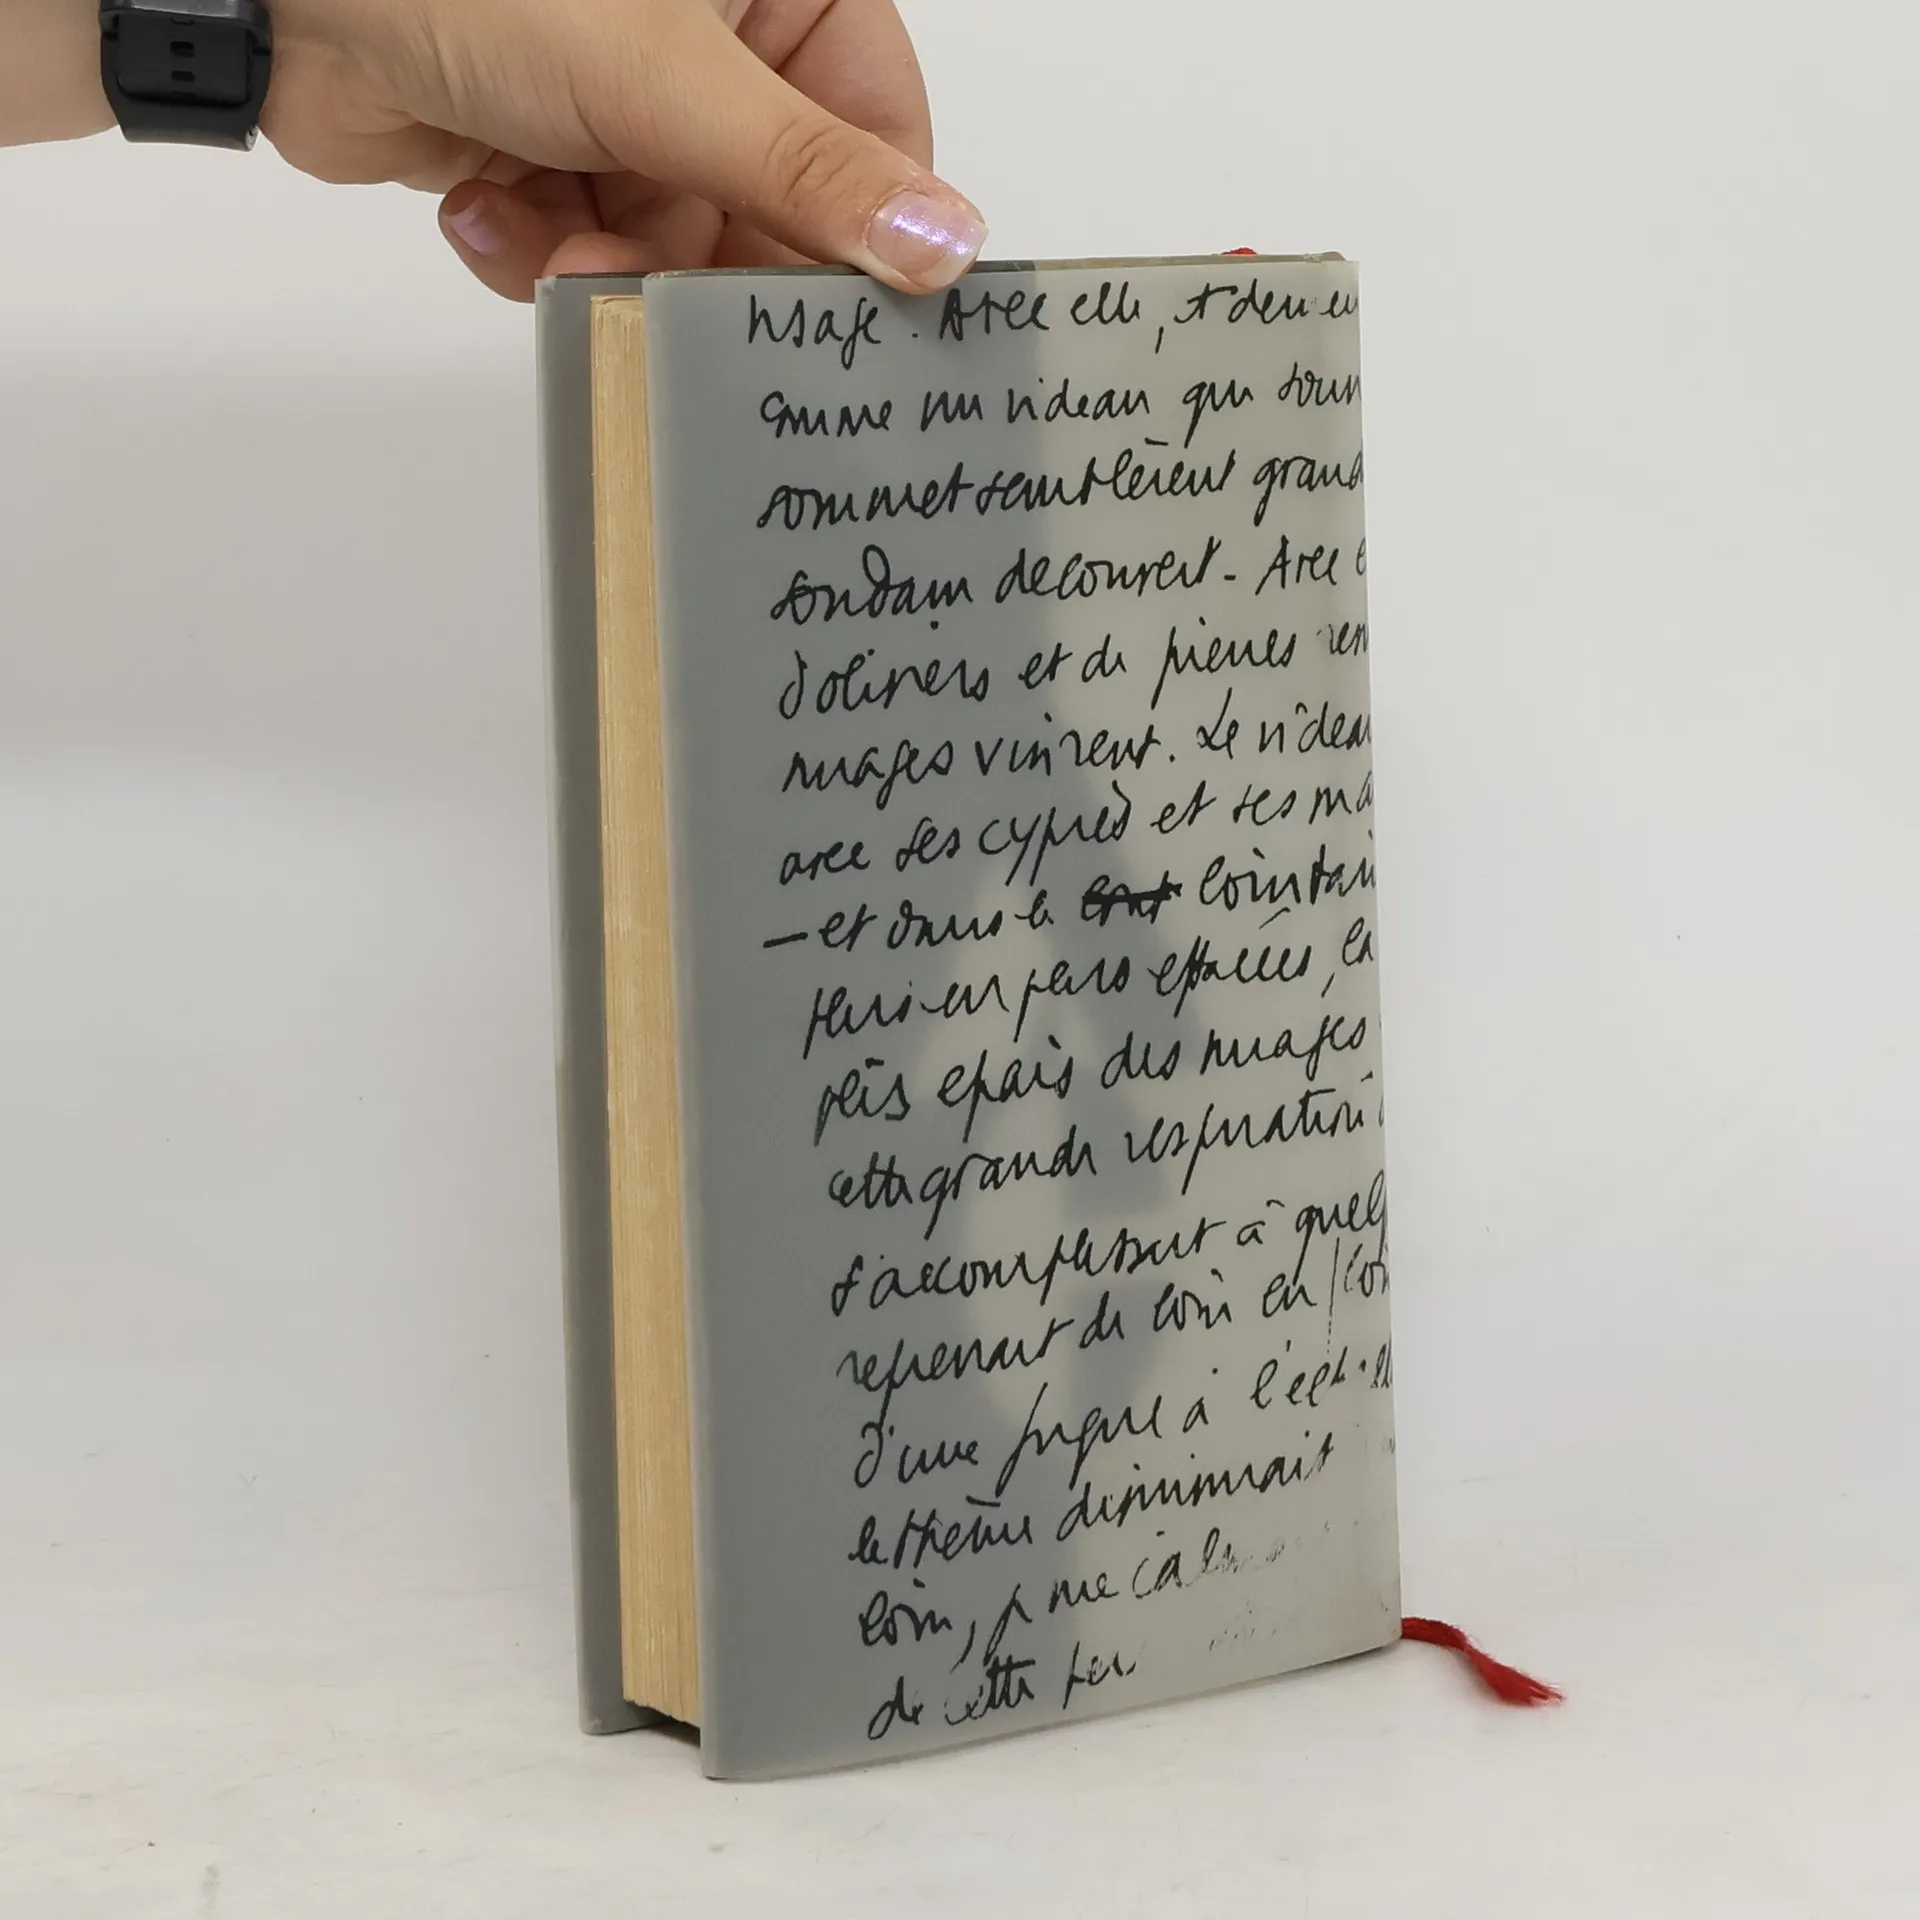 visage. Avec elle, et derrière
comme un rideau qui s'ouvr
sommet semblèrent grand
soudain découvert - Avec e
d'oliviers et de pierres
nuages vinrent. Le ridea
avec ses cyprès et ses ma
— et dans le lointai
effacées, la
plis épais des nuages
cette grande respiration
s'accomplissait à quel
reprenait de loin en loin
d'une fugue à l'
le thème diminuait
loin, je me cal
de cette